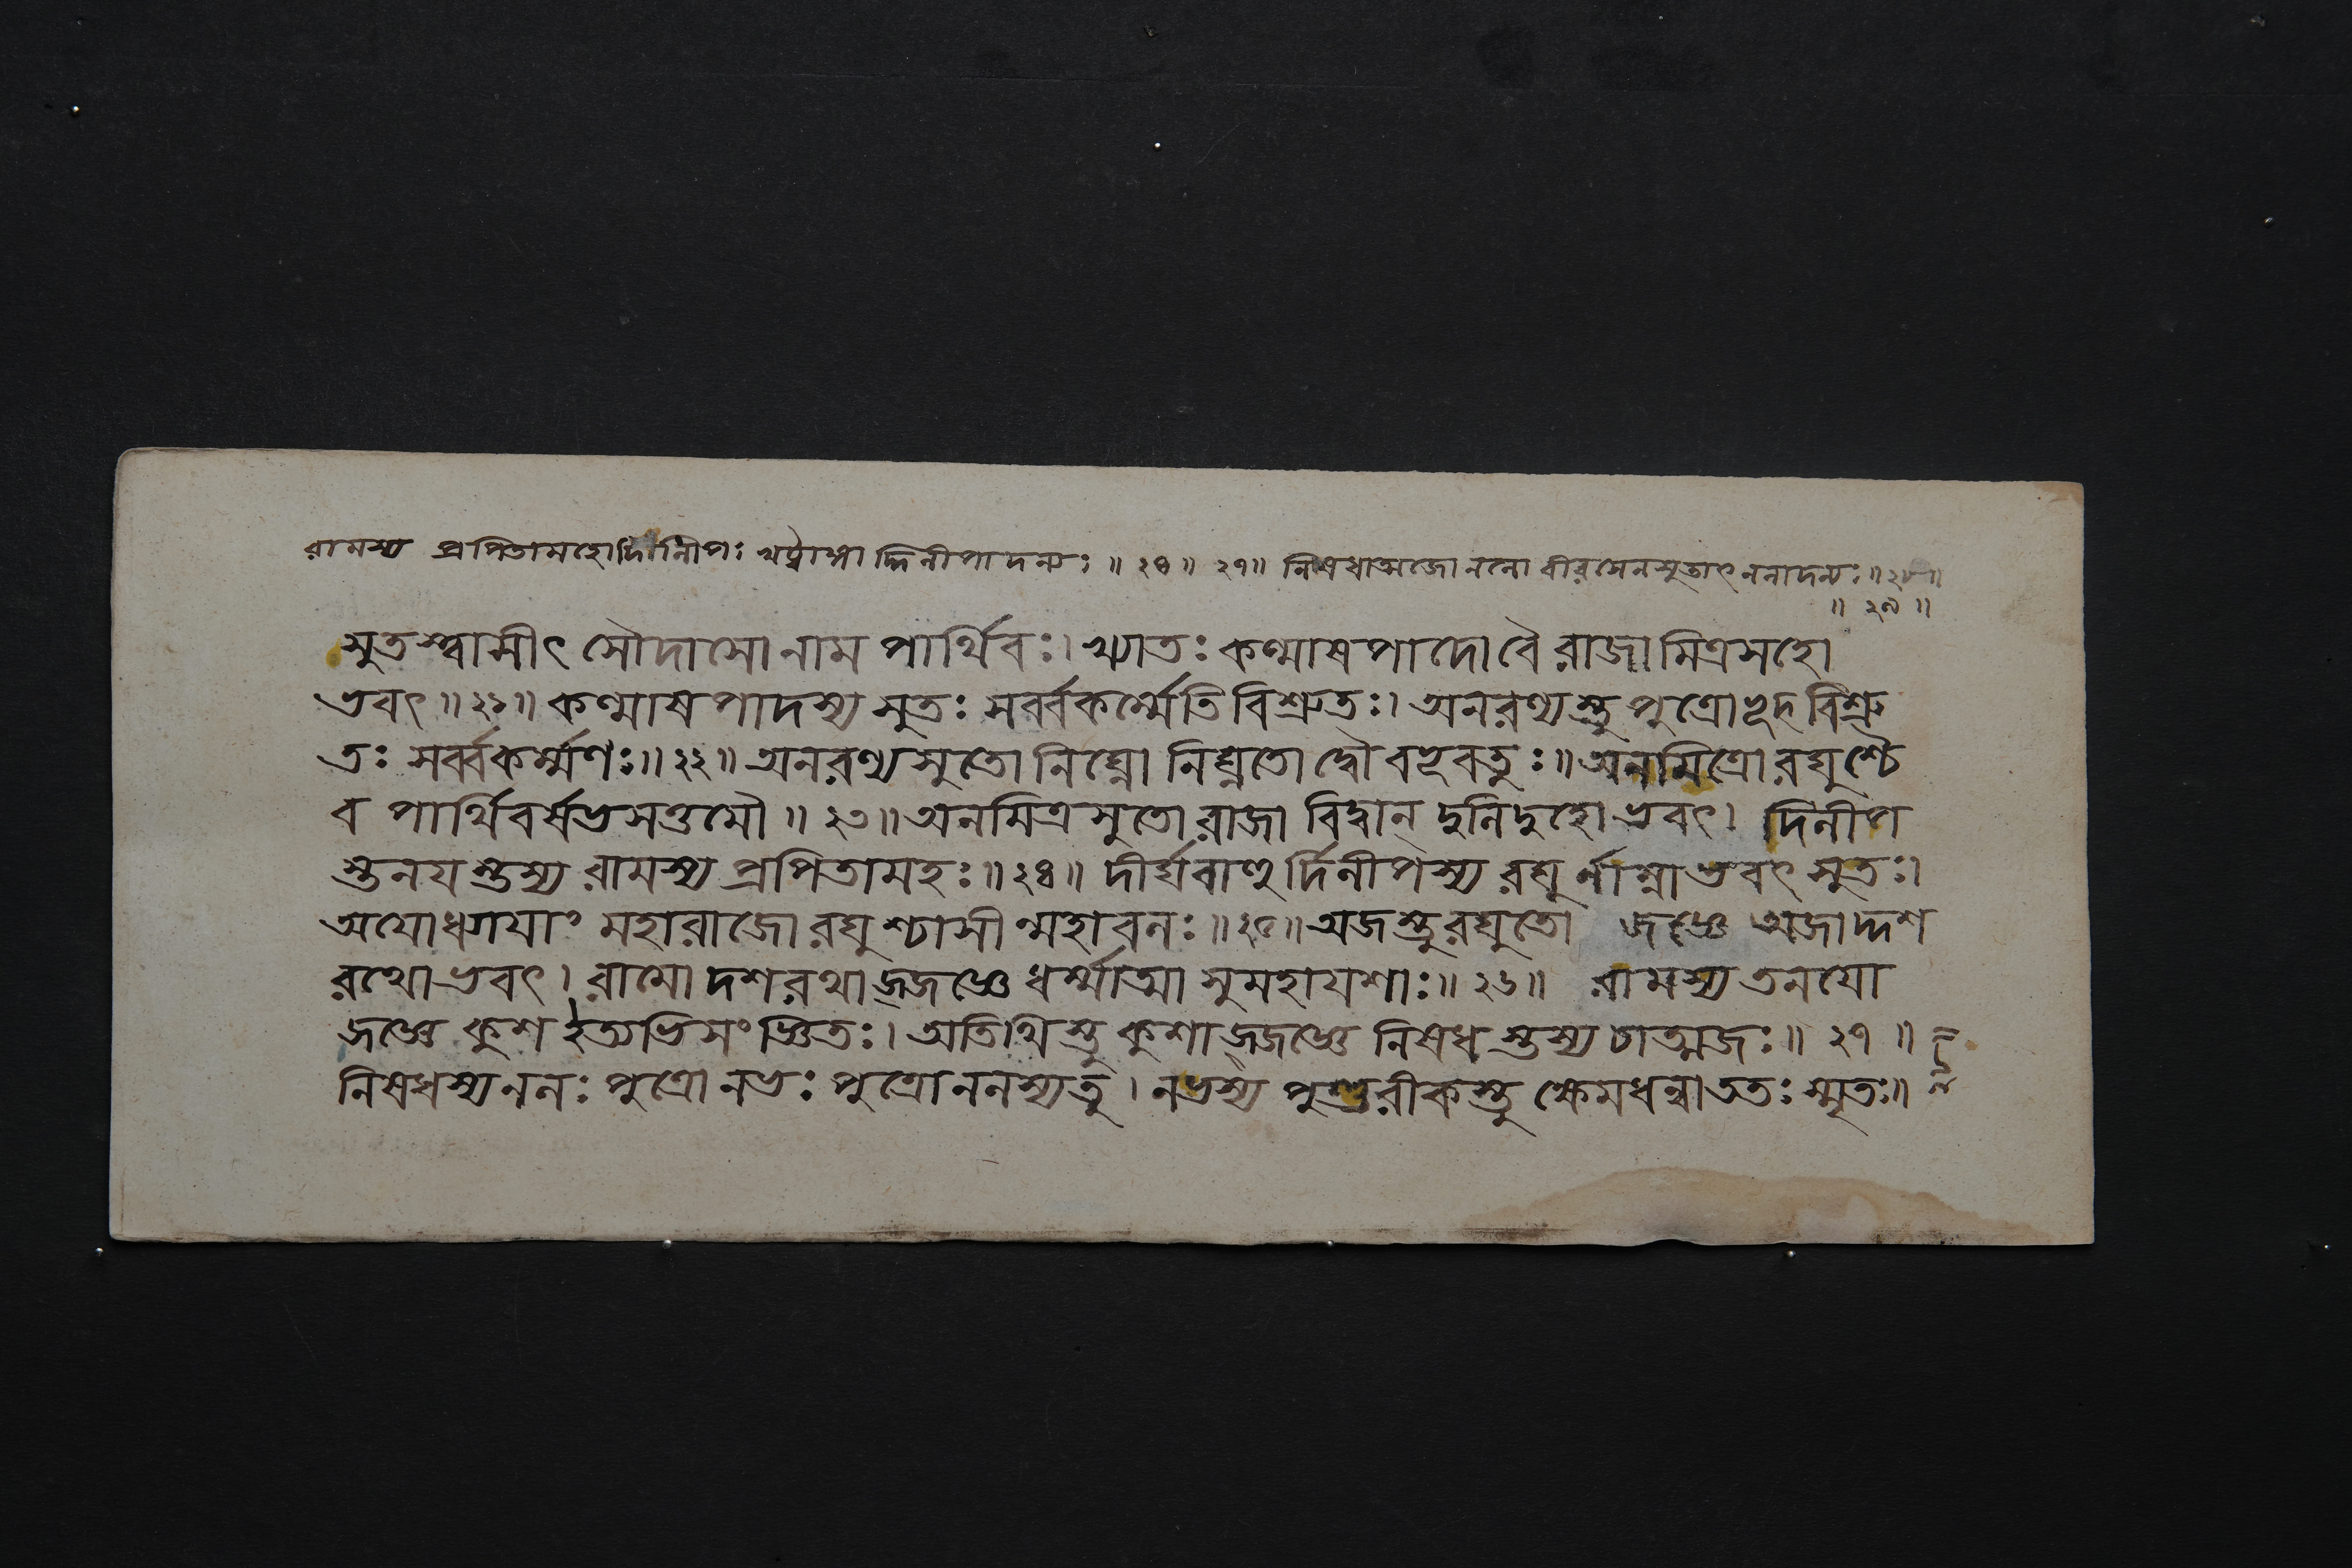 রামস্য প্রপিতামহোদিলীপঃ খট্বাঙ্গাদ্দিলীপাদন্যঃ ॥ ২৪ ॥ ২৭ ॥ নিষধাত্মজোনলো বীরসেনসুতাৎ নলাদন্যঃ ॥ ২৮ ॥
॥ ২৯ ॥
সুতস্ত্বাসীৎ সৌদাসো নাম পার্থিবঃ। খ্যাতঃ কল্মাষপাদো বৈ রাজা মিত্রসহো
ভবৎ ॥ ২১ ॥ কল্মাষপাদস্য সুতঃ সর্ব্বকর্ম্মেতি বিশ্রুতঃ। অনরণ্যস্তু পুত্রোভূদ্বিশ্রু
তঃ সর্ব্বকর্ম্মণঃ ॥ ২২ ॥ অনরণ্যসুতো নিঘ্নো নিঘ্নতো দ্বৌ বভূবতুঃ ॥ অনমিত্রো রঘুশ্চৈ
ব পার্থিবর্ষভসত্তমৌ ॥ ২৩ ॥ অনমিত্রসুতো রাজা বিদ্বান্ দুলিদুহোভবৎ। দিলীপ
স্তনযস্তস্য রামস্য প্রপিতামহঃ ॥ ২৪ ॥ দীর্ঘবাহুর্দিলীপস্য রঘুর্নাম্নাভবৎ সুতঃ।
অযোধ্যাযাং মহারাজো রঘুশ্চাসীন্মহাবলঃ ॥ ২৫ ॥ অজস্তু রঘুতো জজ্ঞে অজাদ্দশ
রথোভবৎ। রামো দশরথাজ্জজ্ঞে ধর্ম্মাত্মা সুমহাযশাঃ ॥ ২৬ ॥ রামস্য তনযো
জজ্ঞে কুশ ইত্যভিসংজ্ঞিতঃ। অতিথিস্তু কুশাজ্জজ্ঞে নিষধস্তস্য চাত্মজঃ ॥ ২৭ ॥
নিষধস্য নলঃ পুত্রো নভঃ পুত্রো নলস্য তু। নভস্য পুণ্ডরীকস্তু ক্ষেমধন্বা ততঃ স্মৃতঃ ॥